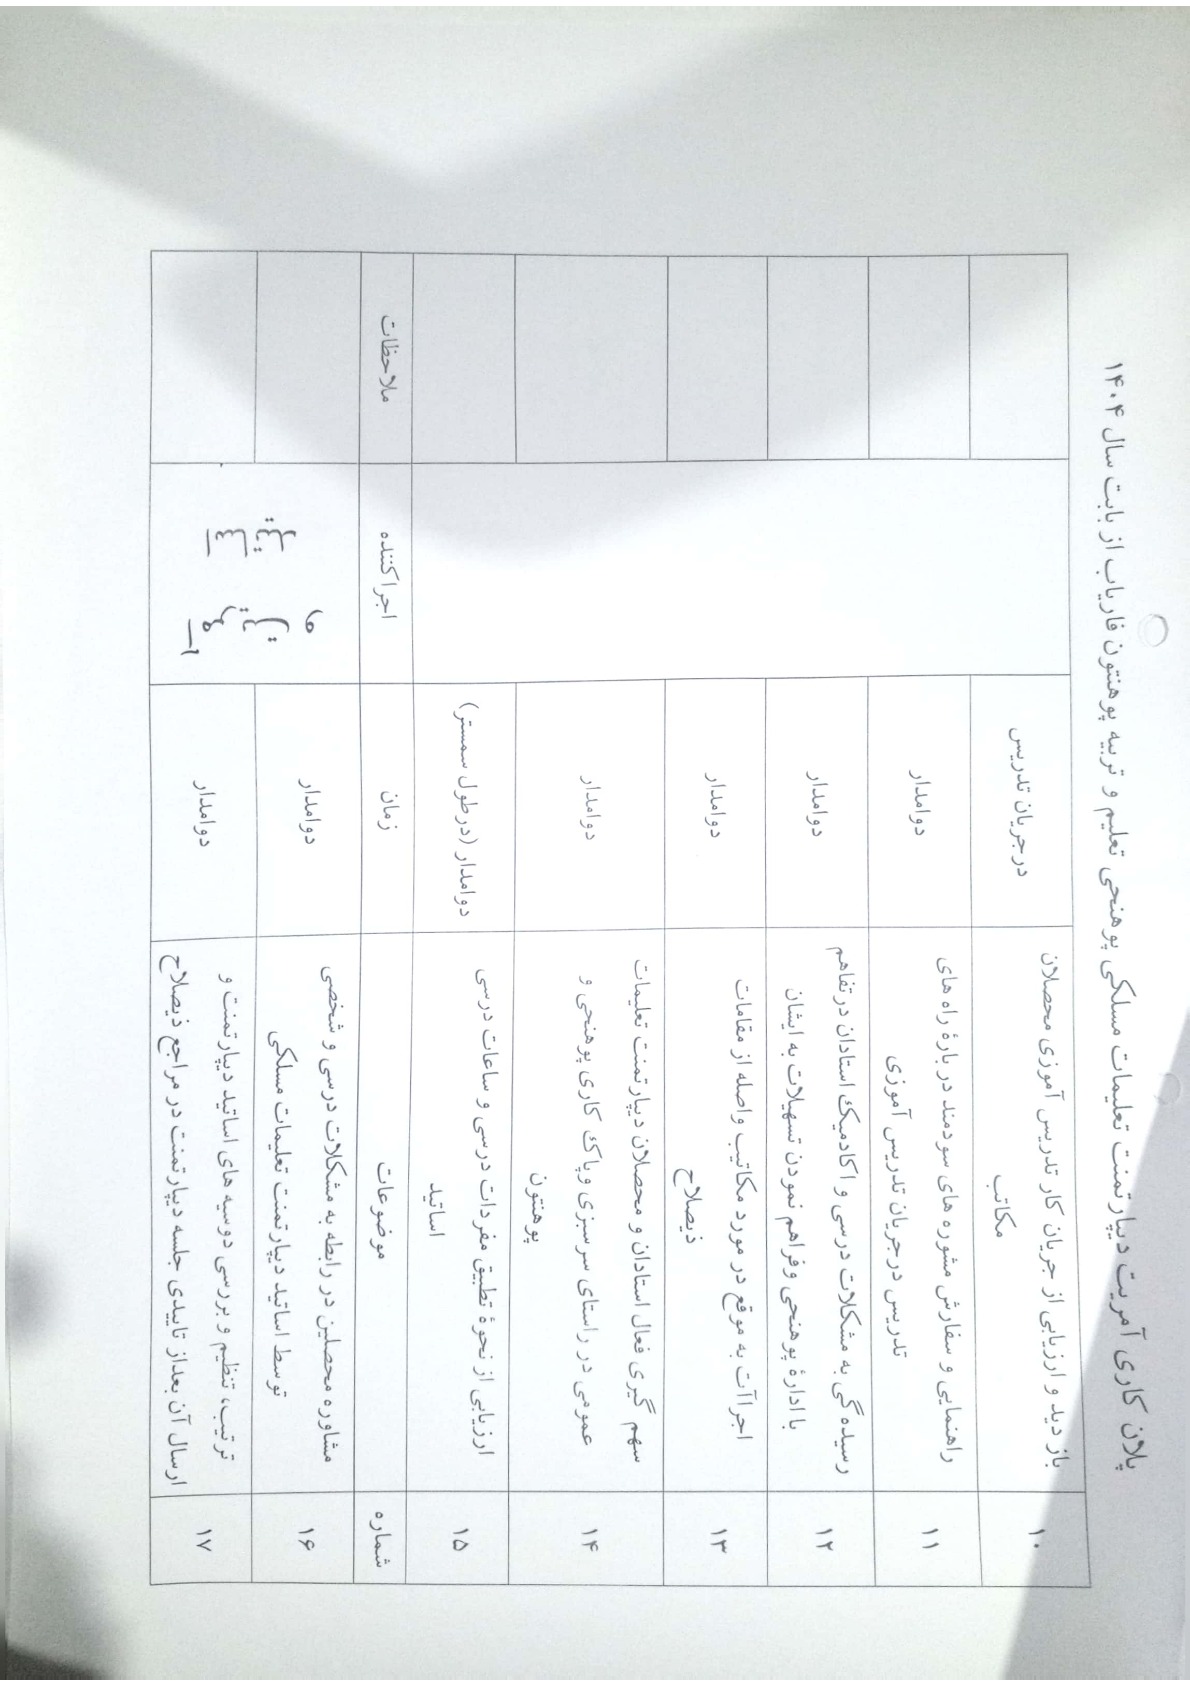 پلان کاری آمریت دیپارتمنت تعلیمات مسلکی پوهنحی تعلیم و تربیه پوهنتون فاریاب از بابت سال ۱۴۰۴
۱۰
باز دید و ارزیابی از جریان کار تدریس آموزی محصلان
مکاتب
درجریان تدریس
۱۱
راهنمایی و سفارش مشوره های سودمند در بارهٔ راه های
تدریس در جریان تدریس آموزی
دوامدار
۱۲
رسیده گی به مشکلات درسی و اکادمیک استادان در تفاهم
با ادارهٔ پوهنحی و فراهم نمودن تسهیلات به ایشان
دوامدار
۱۳
اجراآت به موقع در مورد مکاتیب واصله از مقامات
ذیصلاح
دوامدار
۱۴
سهم گیری فعال استادان و محصلان دیپارتمنت تعلیمات
عمومی در راستای سرسبزی و پاک کاری پوهنحی و
پوهنتون
دوامدار
۱۵
ارزیابی از نحوهٔ تطبیق مفردات درسی و ساعات درسی
اساتید
دوامدار (درطول سمستر)
شماره موضوعات زمان اجراکننده ملاحظات
۱۶
مشاوره محصلین در رابطه به مشکلات درسی و شخصی
توسط اساتید دیپارتمنت تعلیمات مسلکی
دوامدار
۱۷
ترتیب، تنظیم و بررسی دوسیه های اساتید دیپارتمنت و
ارسال آن بعداز تاییدی جلسه دیپارتمنت در مراجع ذیصلاح
دوامدار